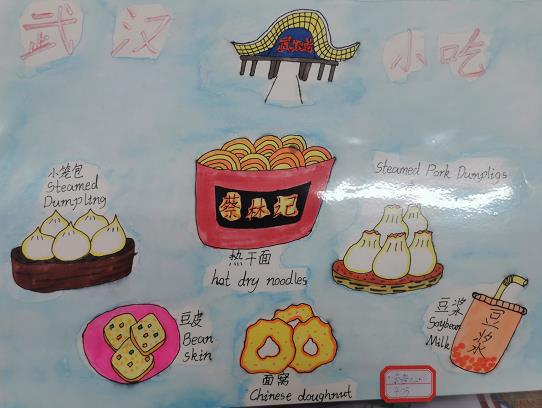 武汉
小吃
小笼包
Steamed
Dumpling
蔡林记
热干面
hot dry noodles
Steamed Pork Dumpligs
豆皮
Bean
skin
面窝
Chinese doughnut
豆浆
Soybean
Milk
豆浆